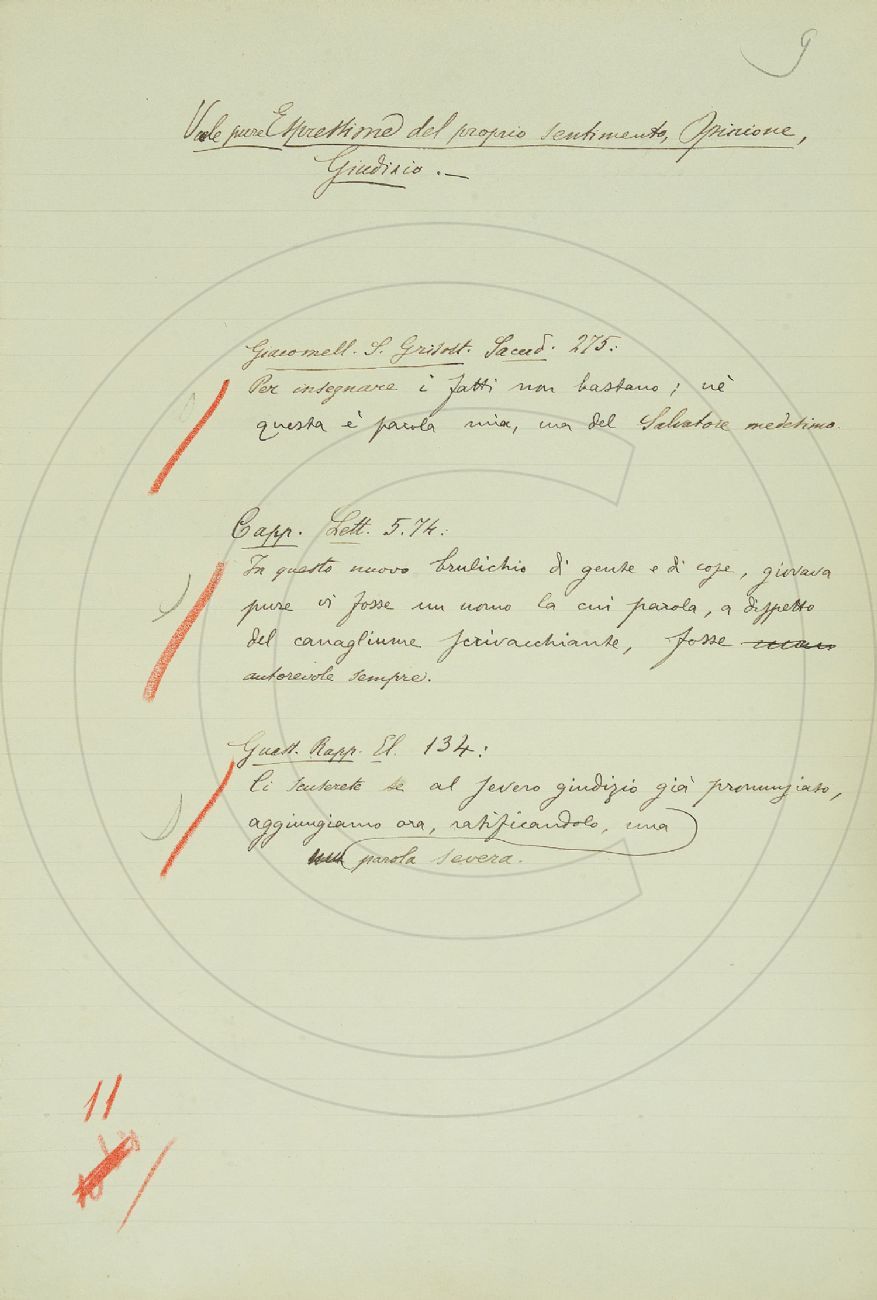 9
Vale pure Espressione del proprio sentimento, Opinione,
Giudizio. —
Giacomell. S. Grisost. Sacerd. 275:
Per insegnare i fatti non bastano; nè
questa è parola mia, ma del Salvatore medesimo.
Capp. Lett. 5. 74:
In questo nuovo brulichio di gente e di cose, giovava
pure vi fosse un uomo la cui parola, a dispetto
del canagliume scrivacchiante, fosse
autorevole sempre.
Guast. Rapp. El. 134:
Ci scuserete se al severo giudizio già pronunziato,
aggiungiamo ora, ratificandolo, una
parola severa.
11